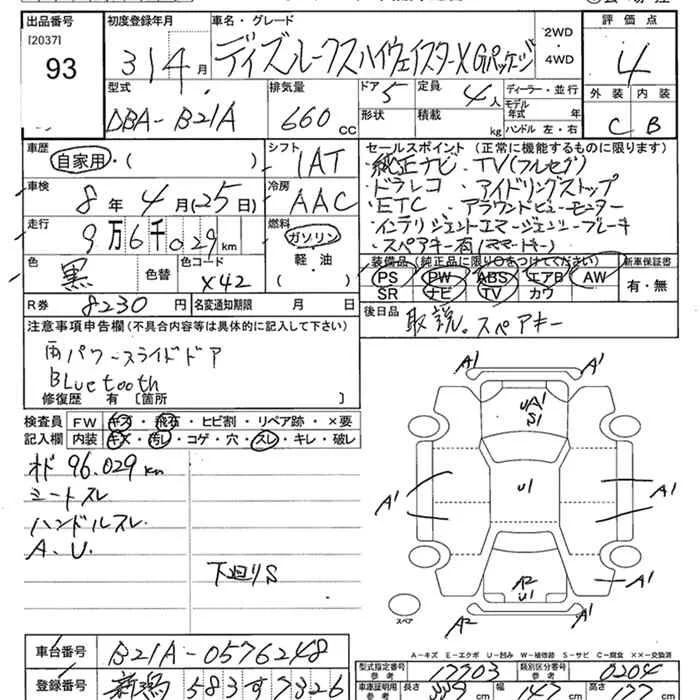 出品番号
[2037]
93
初度登録年月
31 4 月
車名・グレード
デイズルークスハイウェイスターX Gパッケージ
2WD
・
4WD
評価点
4
型式
DBA-B21A
排気量
660 CC
ドア
5
定員
4 人
形状
積載
kg
ディーラー・並行
モデル
年式 年
ハンドル 左・右
外装
内装
C
B
車歴
自家用・( )
シフト
IAT
セールスポイント(正常に機能するものに限ります)
・純正ナビ・TV(フルセグ)
・ドラレコ・アイドリングストップ
・ETC・アラウンドビューモニター
・インテリジェントエマージェンシーブレーキ
・スペアキー有(スマートキー)
車検
8 年 4 月(25日)
冷房
AAC
走行
9万6千029km
燃料
ガソリン
軽・油
( )
色
黒
色替
色コード
X42
装備品(純正品に限り○をつけてください)
新車保証書
PS PW ABS エアB AW
SR ナビ TV カワ
有・無
R券 8230円
名変通知期限 月 日
後日品 取説。スペアキー
注意事項申告欄(不具合内容等は具体的に記入して下さい)
両パワースライドドア
Bluetooth
修復歴 有 [箇所 ]
検査員
記入欄
FW キズ・飛石・ヒビ割・リペア跡・×要
内装 キズ・汚レ・コゲ・穴・スレ・キレ・破レ
オド 96.029km
シートスレ
ハンドルスレ.
A.U.
下廻りS
A1
A1
UA1
S1
U1
A1
A1
A1
A2
U1
A2
A1
スペア
A-キズ E-エクボ U-凹み W-補修跡 S-サビ C-腐食 ××-交換済
車台番号
B21A-0576248
登録番号
新潟 583 す 7326
型式指定番号
参考
17703
類別区分番号
参考
0204
車庫証明用
参考
長さ
339 cm
幅
147 cm
高さ
177 cm